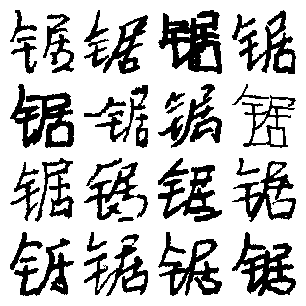 锯锯锯锯
锯锯锯锯
锯锯锯锯
锯锯锯锯